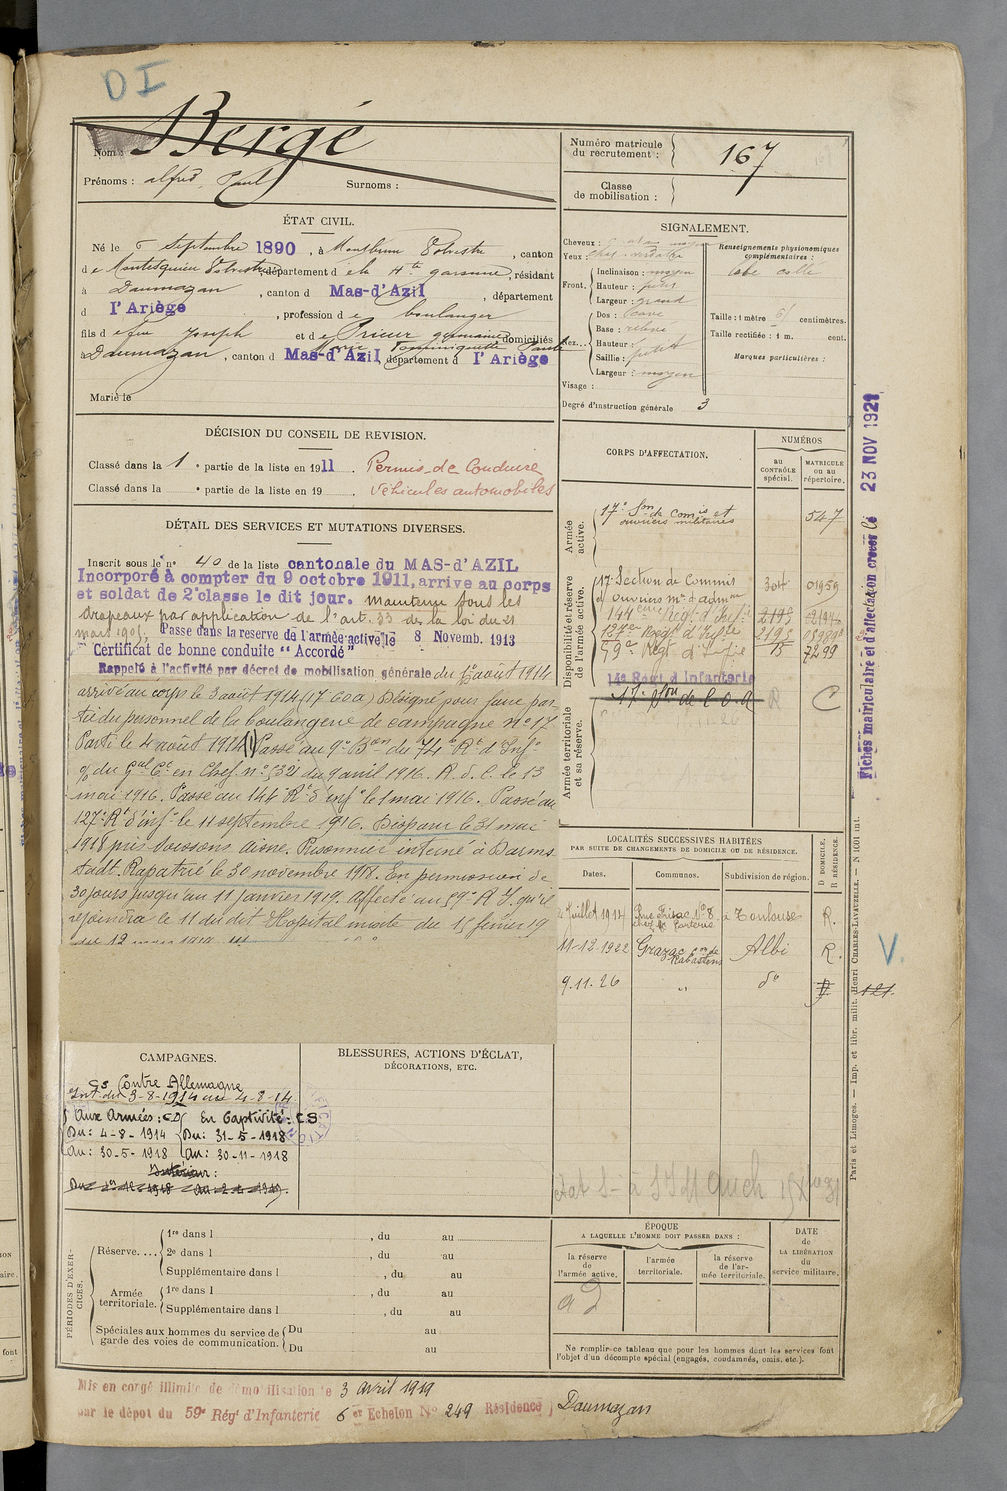 DI
Nom : Bergé
Prénoms : alfred, Paul Surnoms :
Numéro matricule du recrutement : 167
Classe de mobilisation :
ÉTAT CIVIL.
Né le 6 Septembre 1890, à Montbrun Volvestre, canton
de Montesquieu Volvestre, département de la Hte garonne, résidant
à Daumazan, canton d Mas-d'Azil, département
d l'Ariège, profession de boulanger
fils de feu Joseph et de Prieur germaine domiciliés
Marie Dominiquette Paule
à Daumazan, canton d Mas-d'Azil, département d l'Ariège
Marié le
SIGNALEMENT.
Cheveux :
Yeux :
Front. Inclinaison : moyen
Hauteur : petit
Largeur : grand
Nez... Dos : cave
Base : relevé
Hauteur :
Saillie : petit
Largeur : moyen
Visage :
Degré d'instruction générale 3
Renseignements physionomiques complémentaires :
lobe collé
Taille : 1 mètre 61 centimètres.
Taille rectifiée : 1 m. cent.
Marques particulières :
DÉCISION DU CONSEIL DE REVISION.
Classé dans la 1e partie de la liste en 1911. Permis de Conduire
Classé dans la e partie de la liste en 19 . Véhicules automobiles
DÉTAIL DES SERVICES ET MUTATIONS DIVERSES.
Inscrit sous le n° 40 de la liste cantonale du MAS-d'AZIL
Incorporé à compter du 9 octobre 1911, arrive au corps
et soldat de 2e classe le dit jour. maintenu sous les
drapeaux par application de l'art. 33 de la loi du 21
mars 1905. Passe dans la reserve de l'armée active le 8 Novemb. 1913
Certificat de bonne conduite "Accordé"
Rappelé à l'activité par décret de mobilisation générale du 1er août 1914
arrivé au corps le 3 août 1914 (17 COA) Désigné pour faire par-
tie du personnel de la boulangerie de campagne N° 17
Parti le 4 août 1914 (1) Passé au 9e Bon du 74e Rt d'Infie
du Gal Ct en Chef n° 5321 du 9 avril 1916. A. d. c. le 13
mai 1916. Passé au 144 Rt d'infie le 1 mai 1916. Passé au
127e Rt d'infie le 11 septembre 1916. Disparu le 31 mai
1918 près Soissons Aisne. Prisonnier interné à Darms-
tadt. Rapatrié le 30 novembre 1918. En permission de
30 jours jusqu'au 11 janvier 1919. Affecté au 59e R I. qu'il
rejoindra le 11 du dit Hopital mixte du 15 février 19
CORPS D'AFFECTATION.
NUMÉROS
au CONTRÔLE spécial.
MATRICULE ou au répertoire.
Armée active.
17e Son de Comis et ouvriers militaires 547
Disponibilité et réserve de l'armée active.
17e Section de Commis 304 01959
et Ouvriers mres d'admon
144eme Régt d'Infie 2195
127eme Régt d'Infie 2195
59e Régt d'Infie 15 7299
14e Régt d'Infanterie
17e Son de C.O.A R C
Armée territoriale et sa réserve.
Fiches matriculaire et d'affectation créées le 23 NOV 1921
LOCALITÉS SUCCESSIVES HABITÉES
PAR SUITE DE CHANGEMENTS DE DOMICILE OU DE RÉSIDENCE.
Dates. Communes. Subdivision de région. D DOMICILE. R RÉSIDENCE.
Juillet 1914 Rue Frisac No 8 à Toulouse R.
11-12-1922 Grazac con de Rabastens Albi R.
9.11.26 " do D
V.
121.
Paris et Limoges. — Imp. et libr. milit. Henri CHARLES-LAVAUZELLE. — N 1001 int.
CAMPAGNES.
Cs Contre Allemagne
Int. du 3-8-1914 au 4-8-14
Aux Armées : CD En Captivité : CS
Du : 4-8-1914 Du : 31-5-1918
Au : 30-5-1918 Au : 30-11-1918
Intérieur :
BLESSURES, ACTIONS D'ÉCLAT, DÉCORATIONS, ETC.
PÉRIODES D'EXERCICES.
Réserve.... 1re dans l , du au
2e dans l , du au
Supplémentaire dans l , du au
Armée territoriale. 1re dans l , du au
Supplémentaire dans l , du au
Spéciales aux hommes du service de garde des voies de communication. Du au
Du au
ÉPOQUE
A LAQUELLE L'HOMME DOIT PASSER DANS :
la réserve de l'armée active.
l'armée territoriale.
la réserve de l'armée territoriale.
DATE de LA LIBÉRATION du service militaire.
Ne remplir ce tableau que pour les hommes dont les services font
l'objet d'un décompte spécial (engagés, condamnés, omis, etc.).
Mis en congé illimité de démobilisation le 3 avril 1919
par le dépôt du 59e Régt d'Infanterie 6 er Echelon No 249 Résidence Daumazan